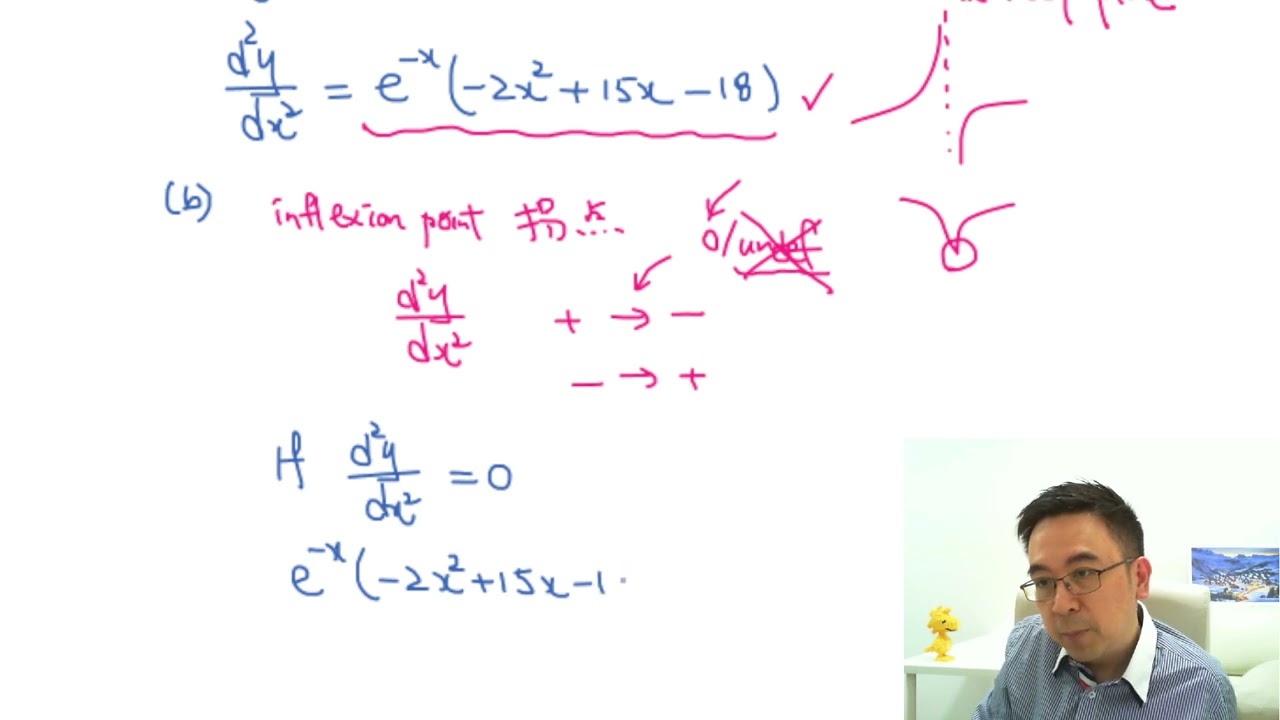 d²y/dx² = e^{-x}(-2x²+15x-18) ✓
(b) inflexion point 拐点
0/undef
d²y/dx² + → -
- → +
If d²y/dx² = 0
e^{-x}(-2x²+15x-1